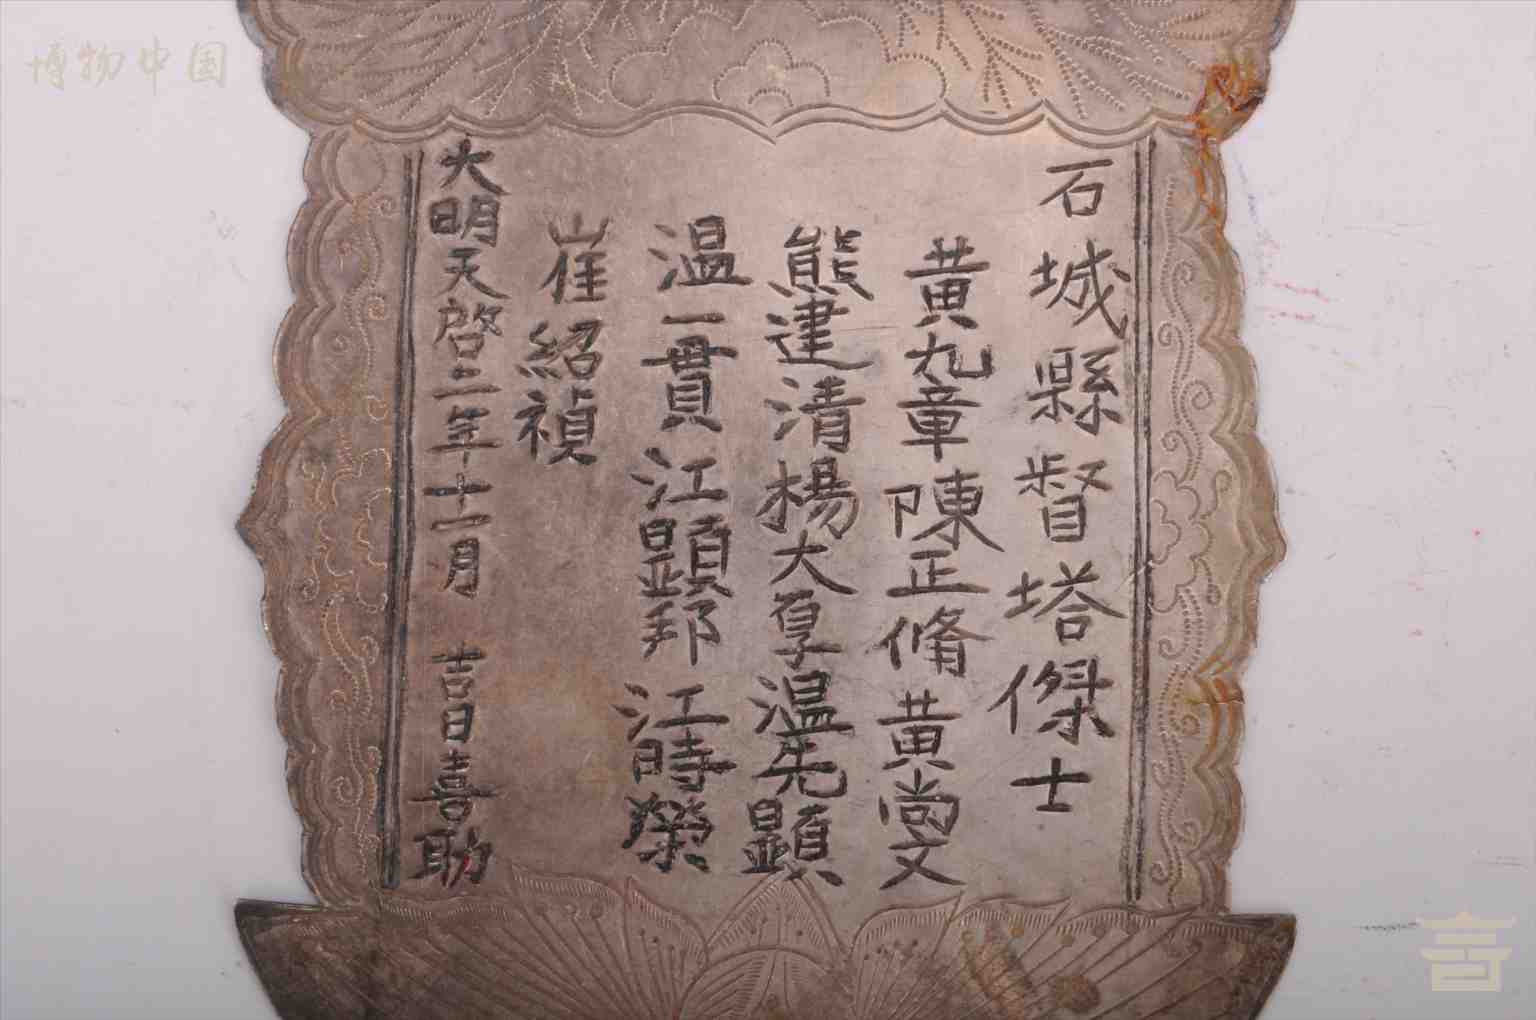 石城縣督塔傑士
黃九章陳正脩黃尚文
熊建清楊大享溫先顯
溫一貫江顯邦江時榮
崔紹禎
大明天啓二年十一月吉日喜助
博物中国